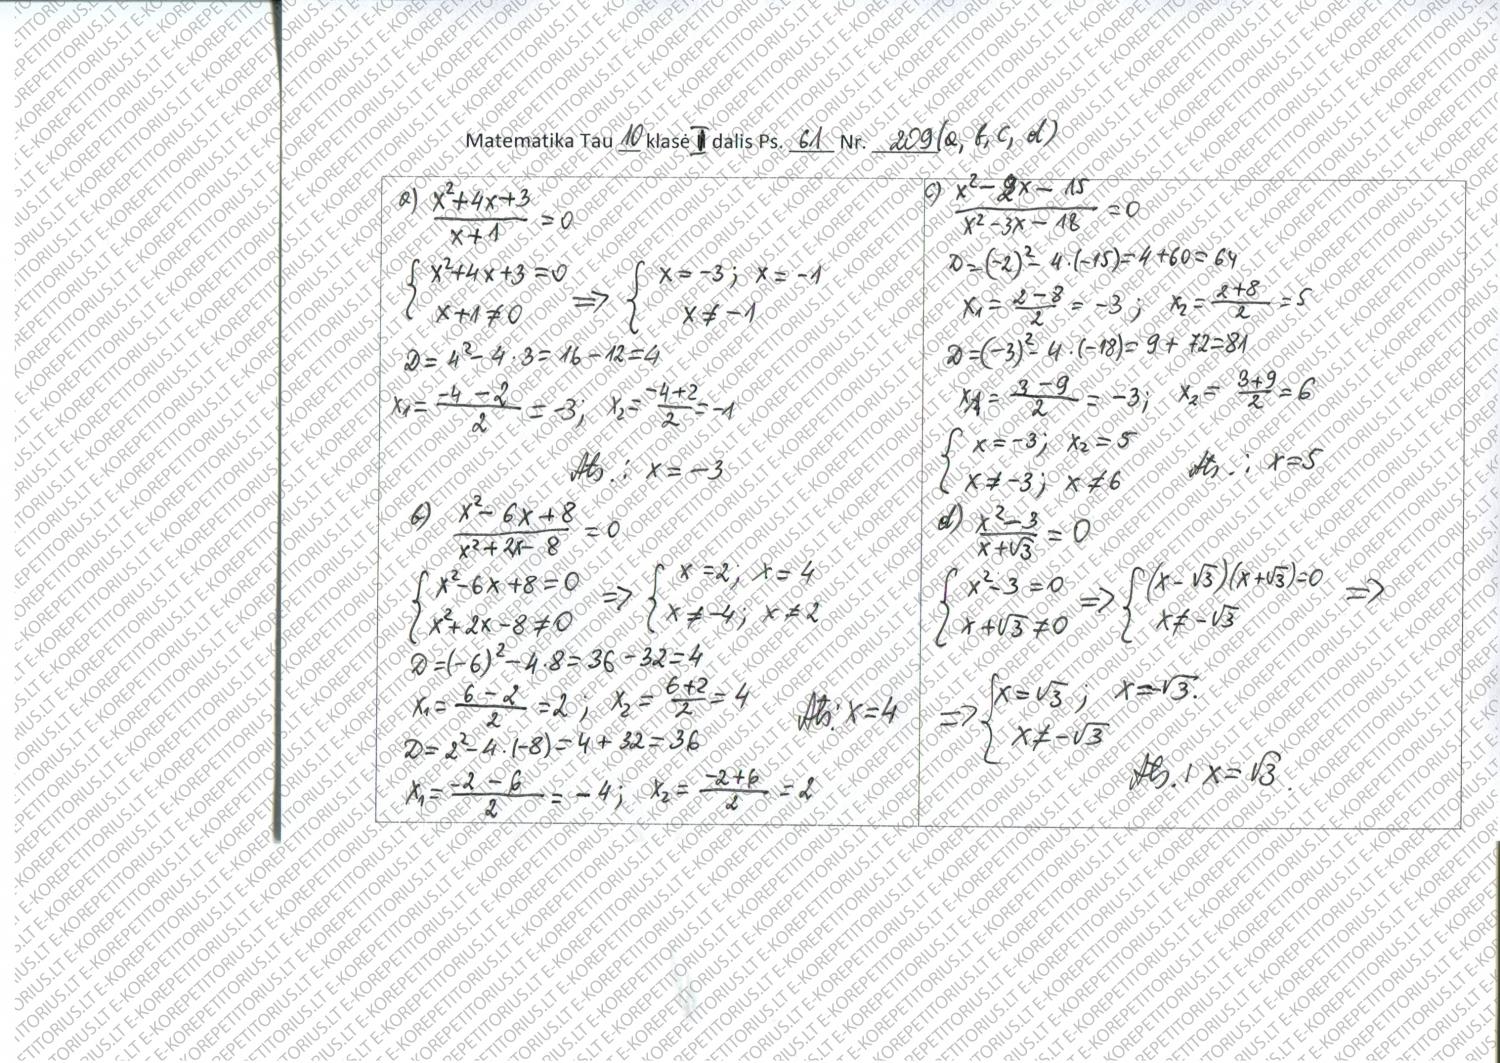 Matematika Tau 10 klasė II dalis Ps. 61 Nr. 209(a, b, c, d)
a) (x²+4x+3)/(x+1) = 0
{ x²+4x+3=0
x+1≠0 => { x=-3; x=-1
x≠-1
D=4²-4·3=16-12=4
x₁=(-4-2)/2=-3; x₂=(-4+2)/2=-1
Ats.: x=-3
b) (x²-6x+8)/(x²+2x-8) = 0
{ x²-6x+8=0
x²+2x-8≠0 => { x=2; x=4
x≠-4; x≠2
D=(-6)²-4·8=36-32=4
x₁=(6-2)/2=2; x₂=(6+2)/2=4
Ats: x=4
D=2²-4·(-8)=4+32=36
x₁=(-2-6)/2=-4; x₂=(-2+6)/2=2
c) (x²-2x-15)/(x²-3x-18) = 0
D=(-2)²-4·(-15)=4+60=64
x₁=(2-8)/2=-3; x₂=(2+8)/2=5
D=(-3)²-4·(-18)=9+72=81
x₁=(3-9)/2=-3; x₂=(3+9)/2=6
{ x=-3; x₂=5
x≠-3; x≠6
Ats.: x=5
d) (x²-3)/(x+√3) = 0
{ x²-3=0
x+√3≠0 => { (x-√3)(x+√3)=0
x≠-√3 =>
=> { x=√3; x=-√3.
x≠-√3
Ats.: x=√3.
E-KOREPETITORIUS.LT